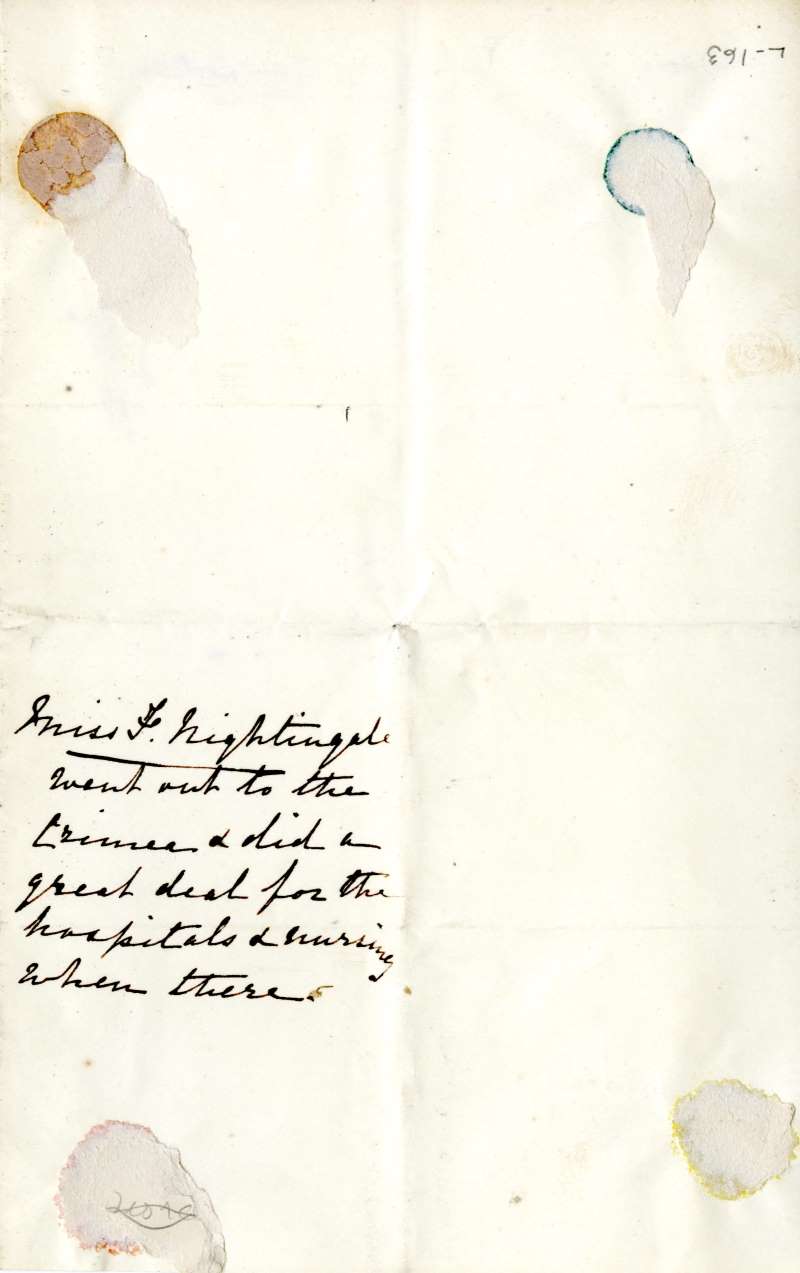 L-163
Miss F. Nightingale
went out to the
Crimea & did a
great deal for the
hospitals & nursing
when there.